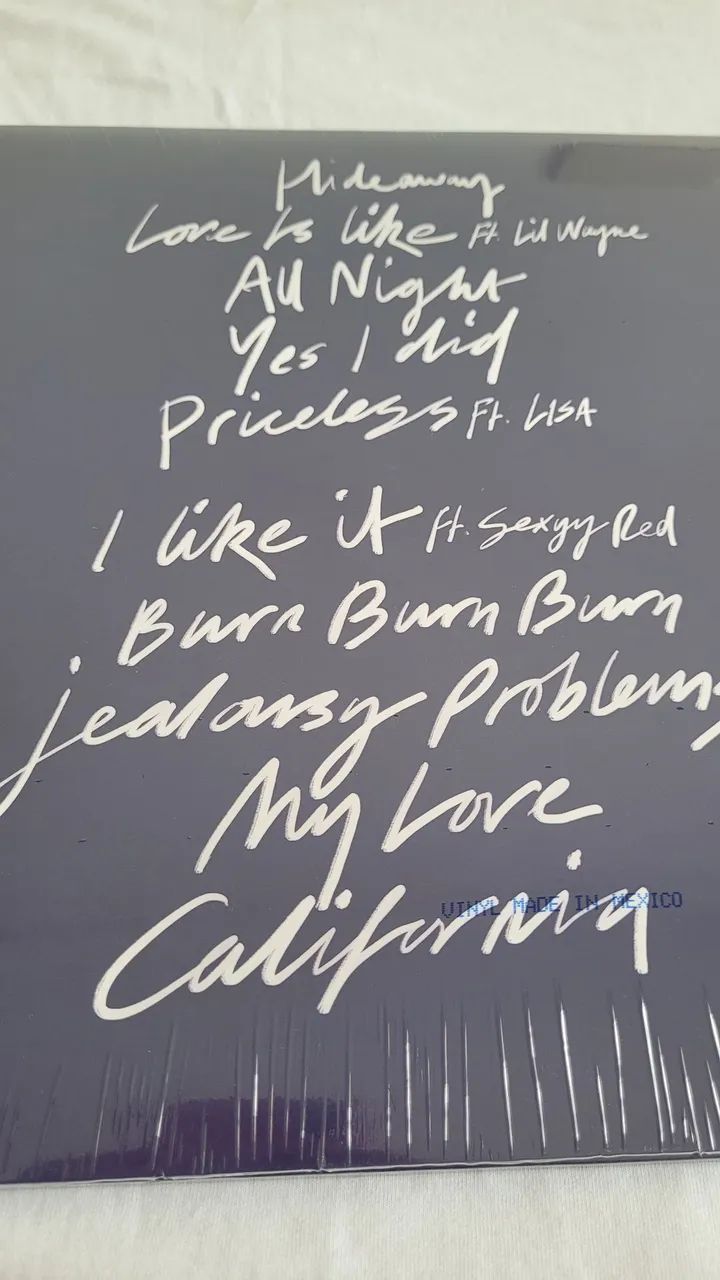 Hideaway
Love Is like Ft. Lil Wayne
All Night
Yes I did
Priceless Ft. LISA
I like it ft. Sexyy Red
Burn Burn Burn
jealousy Problems
My Love
California
VINYL MADE IN MEXICO